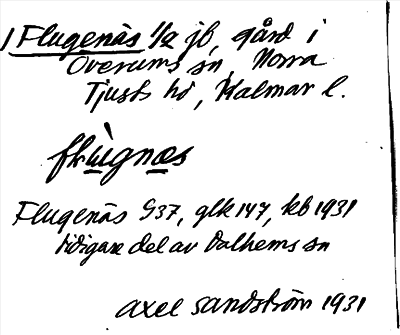 1 Flugenäs 1/2 jb, gård i
Överums sn, Norra
Tjusts hd, Kalmar l.
flùgnæs
Flugenäs G37, glk 147, kb 1931
tidigare del av Dalhems sn
Axel Sandström 1931